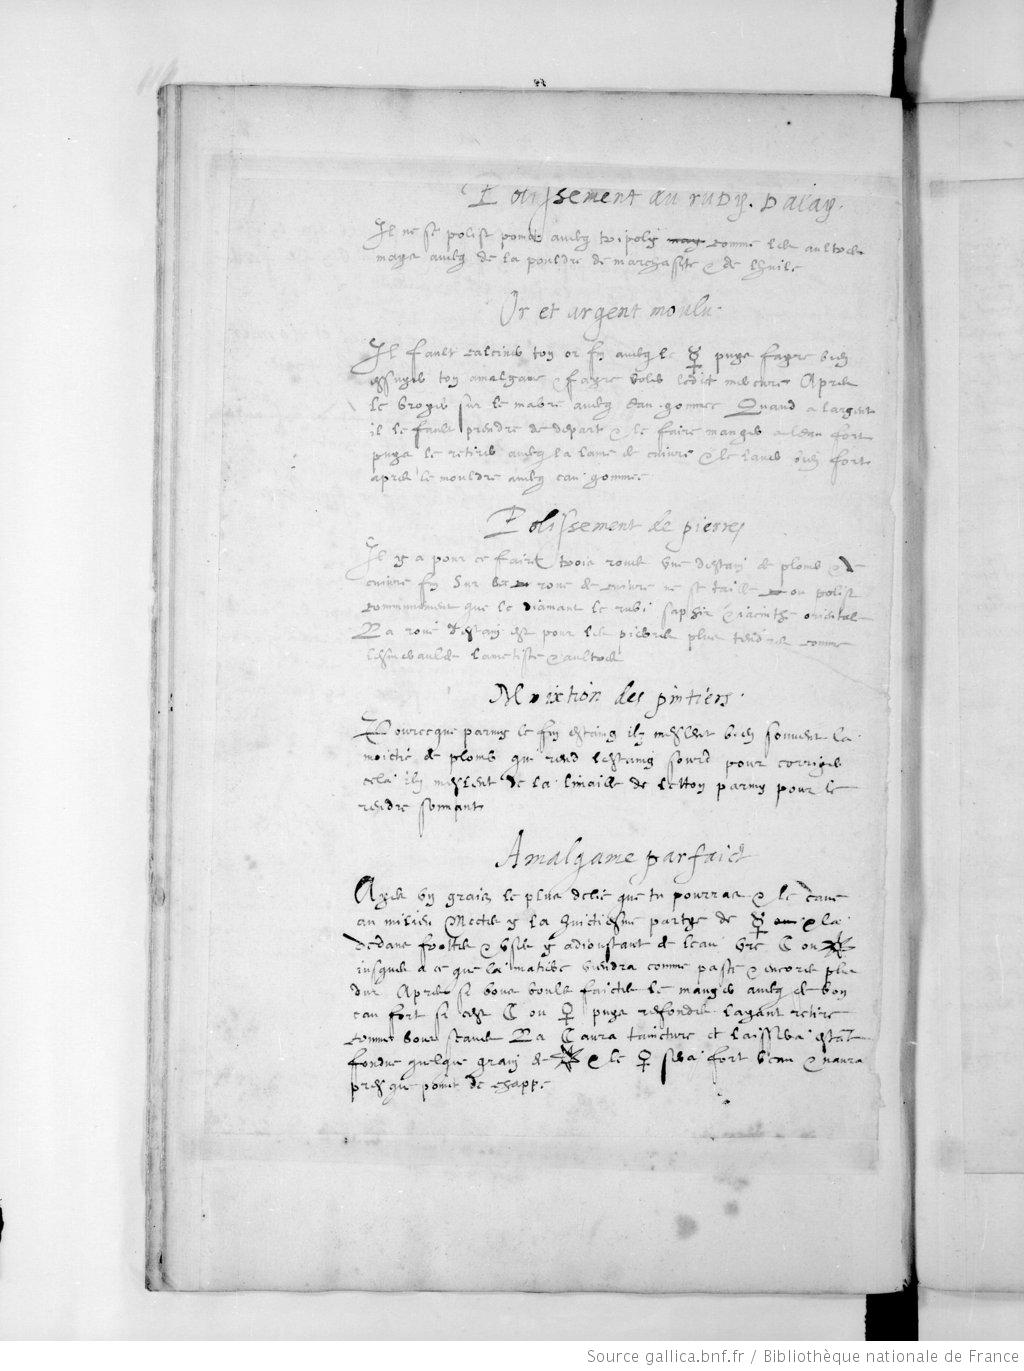 Polissement du rubis balay.
Il ne se polist poinct avecq tripoly may comme les aultres
mays avecq de la pouldre de marchassite & de lhuile
Or et argent moulu.
Il fault calciner ton or fin avecq le ☿ puys fayre bien
essuyer ton amalgame & fayre voler ledict mercure Apres
le broyer sur le mabre avecq eau gommee Quand a largent
il le fault prendre de depart & le faire manger a leau fort
puys le retirer avecq la lame de cuivre & le laver bien fort
apres le mouldre avecq eau gommee
Polissement de pierres
Il y a pour ce faire trois roues une destain de plomb & de
cuivre fin Sur roue de cuivre ne se taille ou polist
communement que le diamant le rubi saphir & iacinthe orientale
La roue destain est pour les pierres plus tendres comme
lesmeraulde lametiste & aultres
Mixtion des pintiers.
Pourceque parmy le fin estaing ilz meslent bien souvent la
moictie de plomb qui rend lestaing sourd pour corriger
cela ilz meslent de la limaille de letton parmy pour le
rendre sonnant
Amalgame parfaict
Ayes un grais le plus delie que tu pourras & le cave
au milieu Mects y la huictiesme partye de ☿ & la
dedans frottes & usse y adioustant de leau ☾ ou
iusques a ce que la matiere viendra comme paste & encores plus
dur Apres si vous voules faictes le manger avecq de bon
eau fort si cest ☾ ou ♀ puys refondes layant retire
comme vous scaves La ☾ aura taincture et laissera estant
fondue quelque grain de & le ♀ sera fort beau & naura
presque point de eschappe
Source gallica.bnf.fr / Bibliothèque nationale de France